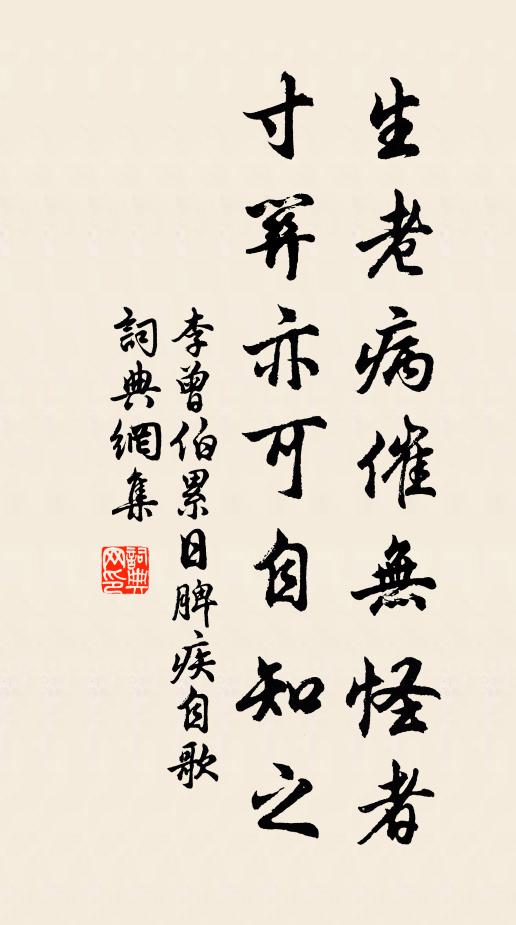 生老病催無怪者
寸筭亦可自知之
李曾伯累日脾疾自歌
詞典網集
詞典網印